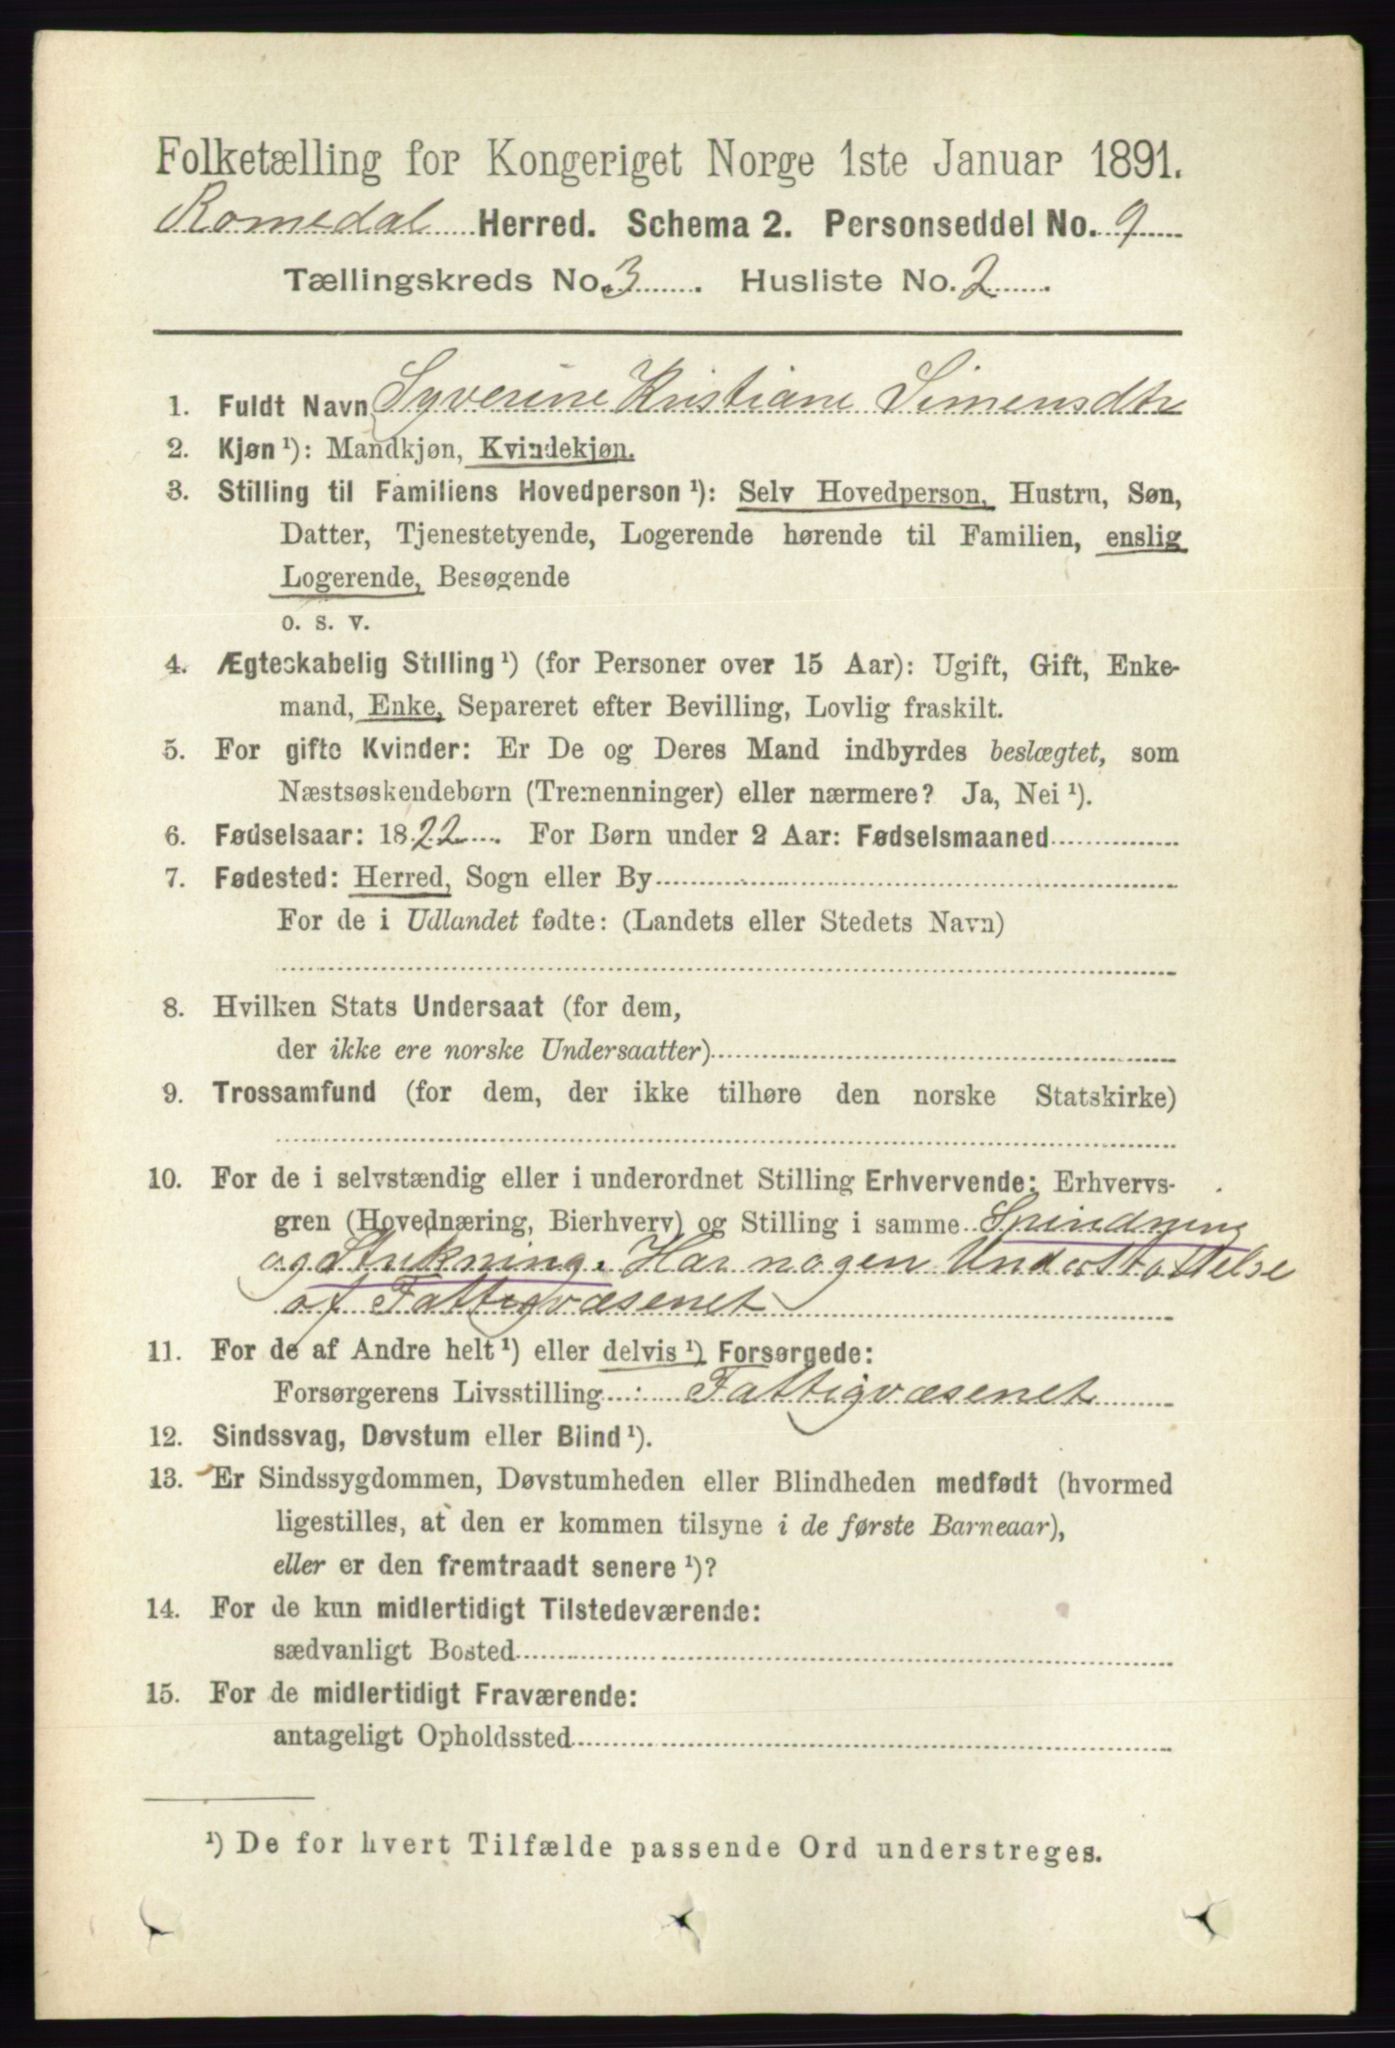 Folketælling for Kongeriget Norge 1ste Januar 1891.
Romedal Herred. Schema 2. Personseddel No. 9
Tællingskreds No. 3. Husliste No. 2.
1. Fuldt Navn Syverine Kristiane Simensdtr
2. Kjøn ¹): Mandkjøn, Kvindekjøn.
3. Stilling til Familiens Hovedperson ¹): Selv Hovedperson, Hustru, Søn,
Datter, Tjenestetyende, Logerende hørende til Familien, enslig
Logerende, Besøgende
o. s. v.
4. Ægteskabelig Stilling ¹) (for Personer over 15 Aar): Ugift, Gift, Enke-
mand, Enke, Separeret efter Bevilling, Lovlig fraskilt.
5. For gifte Kvinder: Er De og Deres Mand indbyrdes beslægtet, som
Næstsøskendebørn (Tremenninger) eller nærmere? Ja, Nei ¹).
6. Fødselsaar: 1822. For Børn under 2 Aar: Fødselsmaaned
7. Fødested: Herred, Sogn eller By
For de i Udlandet fødte: (Landets eller Stedets Navn)
8. Hvilken Stats Undersaat (for dem,
der ikke ere norske Undersaatter)
9. Trossamfund (for dem, der ikke tilhøre den norske Statskirke)
10. For de i selvstændig eller i underordnet Stilling Erhvervende: Erhvervs-
gren (Hovednæring, Bierhverv) og Stilling i samme Spindning
og Strikning. Har nogen Understøttelse
af Fattigvæsenet
11. For de af Andre helt ¹) eller delvis ¹) Forsørgede:
Forsørgerens Livsstilling : Fattigvæsenet
12. Sindssvag, Døvstum eller Blind ¹).
13. Er Sindssygdommen, Døvstumheden eller Blindheden medfødt (hvormed
ligestilles, at den er kommen tilsyne i de første Barneaar),
eller er den fremtraadt senere ¹)?
14. For de kun midlertidigt Tilstedeværende:
sædvanligt Bosted
15. For de midlertidigt Fraværende:
antageligt Opholdssted
¹) De for hvert Tilfælde passende Ord understreges.